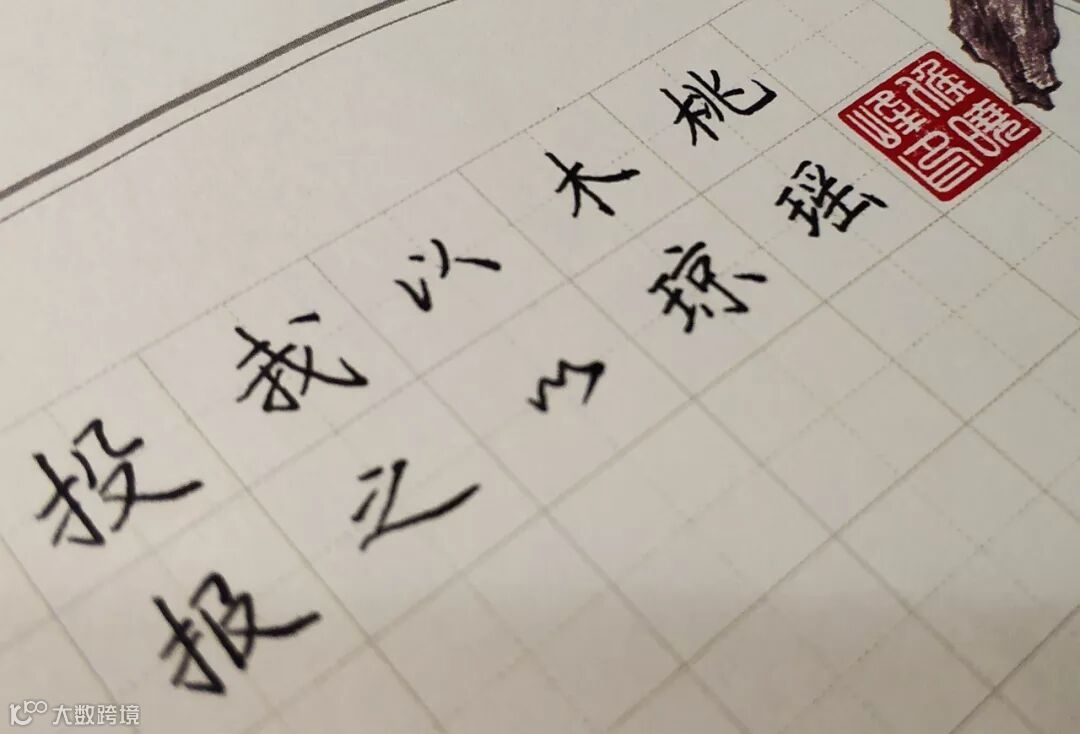 投我以木桃
报之以琼瑶
大数跨境